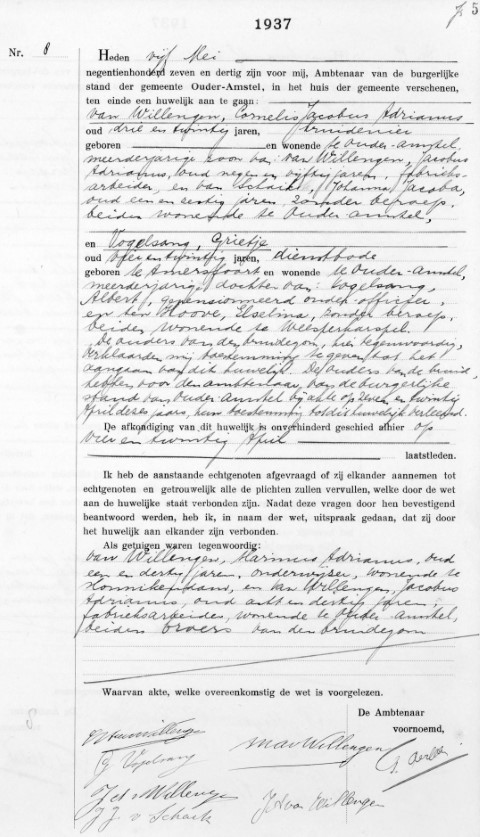 5
1937
Nr. 8
Heden vijf Mei
negentienhonderd zeven en dertig zijn voor mij, Ambtenaar van de burgerlijke
stand der gemeente Ouder-Amstel, in het huis der gemeente verschenen,
ten einde een huwelijk aan te gaan:
van Willengen, Cornelis Jacobus Adrianus
oud drie en twintig jaren, kruidenier
geboren en wonende te Ouder-Amstel,
meerderjarige zoon van: van Willengen, Jacobus
Adrianus, oud negen en vijftig jaren, fabrieks-
arbeider, en van Schaik, Johanna Jacoba,
oud een en zestig jaren, zonder beroep,
beiden wonende te Ouder-Amstel,
en Vogelsang, Grietje
oud vier en twintig jaren, dienstbode
geboren te Amersfoort en wonende te Ouder-Amstel,
meerderjarige dochter van: Vogelsang,
Albert, gepensioneerd onder-officier,
en ten Hoove, Elselina, zonder beroep,
beiden wonende te Weesperkarspel.
De ouders van den bruidegom, hier tegenwoordig,
verklaarden mij toestemming te geven tot het
aangaan van dit huwelijk. De ouders van de bruid
hebben voor den ambtenaar van de burgerlijke
stand van Ouder-Amstel bij akte op zeven en twintig
April dezes jaars, hun toestemming tot dit huwelijk verleend.
De afkondiging van dit huwelijk is onverhinderd geschied alhier op
vier en twintig April
laatstleden.
Ik heb de aanstaande echtgenoten afgevraagd of zij elkander aannemen tot
echtgenoten en getrouwelijk alle de plichten zullen vervullen, welke door de wet
aan de huwelijke staat verbonden zijn. Nadat deze vragen door hen bevestigend
beantwoord werden, heb ik, in naam der wet, uitspraak gedaan, dat zij door
het huwelijk aan elkander zijn verbonden.
Als getuigen waren tegenwoordig:
van Willengen, Marinus Adrianus, oud
een en dertig jaren, onderwijzer, wonende te
Monnikendam, en van Willengen, Jacobus
Adrianus, oud acht en dertig jaren,
fabrieksarbeider, wonende te Ouder-Amstel,
beiden broers van den bruidegom
Waarvan akte, welke overeenkomstig de wet is voorgelezen.
De Ambtenaar
voornoemd,
8
G Vogelsang
M A v Willengen
J A v Willengen
J J v Schaik
J A van Willengen